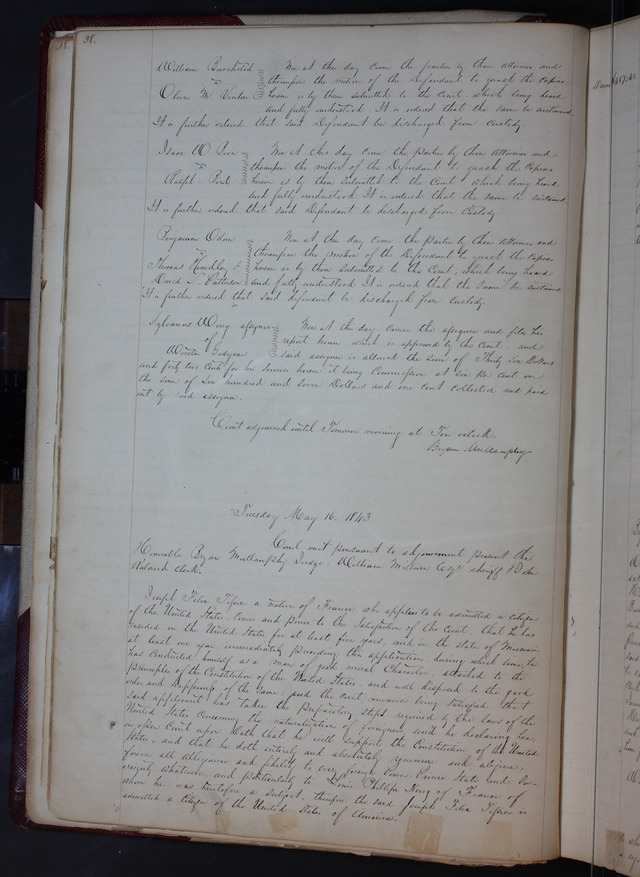 38.
William Now at this day come the parties by their attornies and
vs thereupon the motion of the Defendant to quash the capias
Oliver M. herein is by them submitted to the Court, which being heard
and fully understood It is ordered that the same be sustained
It is further ordered that said Defendant be discharged from custody
Isaac W Now at this day come the parties by their attornies and
vs thereupon the motion of the Defendant to quash the Capias
Ralph Port herein is by them submitted to the Court which being heard
and fully understood It is ordered that the same be sustained
It is further ordered that said Defendant be discharged from Custody.
Benjamin Odne Now at this day come the parties by their attornies and
vs thereupon the motion of the Defendant to quash the capias
Thomas & herein is by them submitted to the Court, which being heard
David S. and fully understood It is ordered that the same be sustained
It is further ordered that said defendant be discharged from custody.
Sylvanus Wing assignee Now at this day comes the assignee and files his
of report herein which is approved by the Court, and
said assignee is allowed the sum of Thirty Six Dollars
and forty two Cents for his services herein it being Commission at six per cent on
the sum of Six hundred and seven Dollars and one cent collected and paid
out by said assignee.
Court adjourned until Tomorrow morning at Ten oclock.
Bryan Mullanphy
Tuesday May 16. 1843
Court met pursuant to adjournment present the
Honorable Bryan Mullanphy Judge. William Milburn Esqr sheriff & John
Ruland clerk.
Joseph Felix a native of France who applies to be admitted a citizen
of the United States comes and proves to the satisfaction of the court that he has
resided in the United States for at least five years, and in the state of Missouri
at least one year immediately preceding this application, during which time, he
has conducted himself as a man of good moral Character, attached to the
principles of the Constitution of the United States, and well disposed to the good
order and happiness of the same; and the court moreover being satisfied, that
said applicant has taken the preparatory steps required by the laws of the
United States concerning the naturalization of foreigners, and he declaring here
in open Court upon oath that he will support the Constitution of the United
States, and that he doth entirely and absolutely renounce and abjure
forever all allegiance and fidelity to every foreign Power Prince State and Sov-
reignty whatsoever, and particularly to Louis Phillipe King of France of
whom he was heretofore a subject, therefore the said Joseph Felix is
admitted a Citizen of the United States of America.